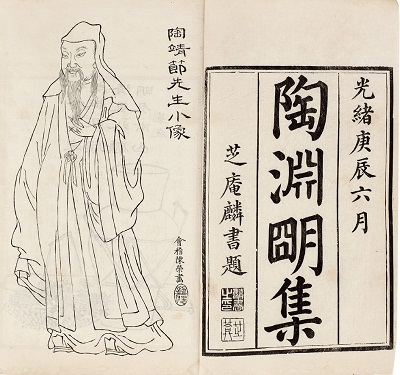 光緒庚辰六月
陶淵朙集
芝庵麟書題
陶靖節先生小像
會稽陳榮畫